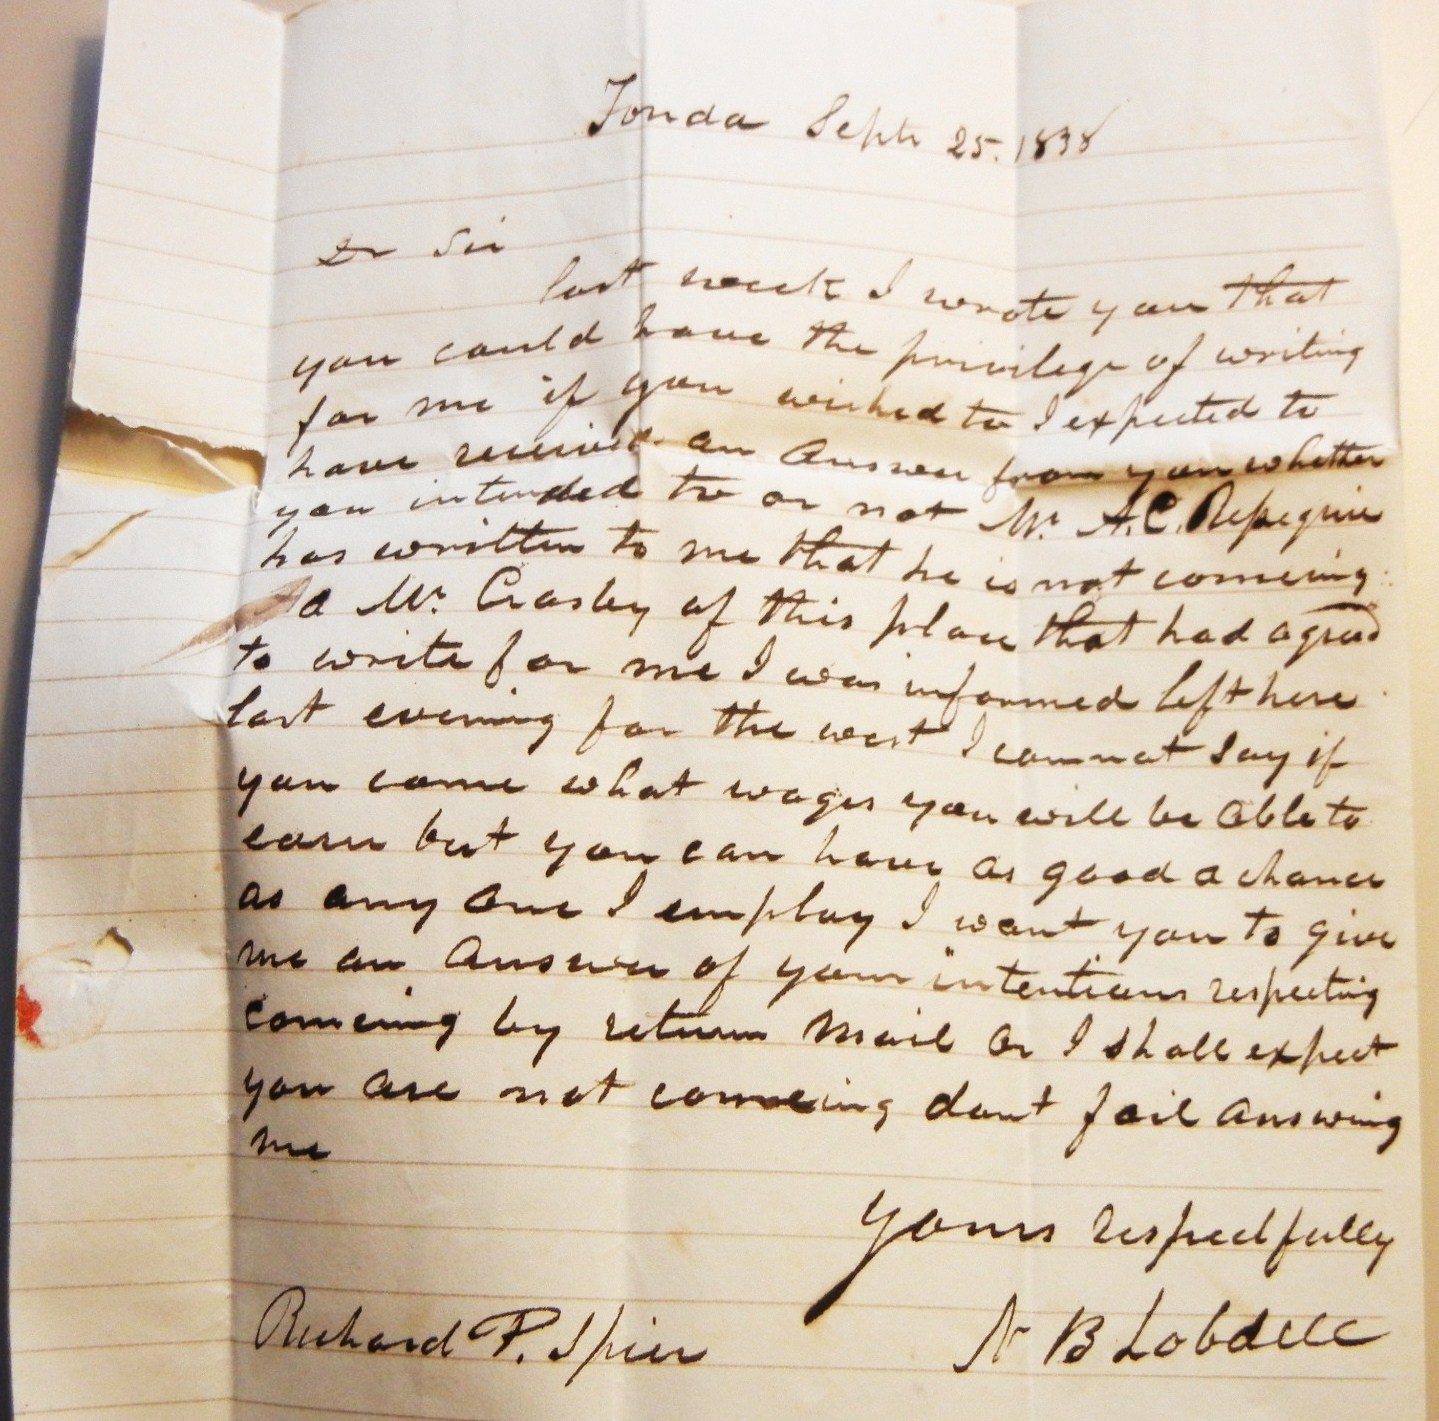 Fonda Septr 25. 1838
Dr Sir
last week I wrote you that
you could have the privilege of writing
for me if you wished to I expected to
have received an answer from you whether
you intended to or not Mr. A.C.
has written to me that he is not comeing
a Mr. Crosby of this place that had agreed
to write for me I was informed left here
last evening for the west I cannot say if
you come what wages you will be able to
earn but you can have as good a chance
as any one I employ I want you to give
me an answer of your intentions respecting
comeing by return mail or I shall expect
you are not comeing dont fail answing
me
yours respectfully
Richard P. Spier N B Lobdell